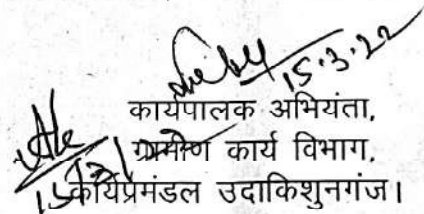 15.3.22
कार्यपालक अभियंता,
ग्रामीण कार्य विभाग,
कार्यप्रमंडल उदाकिशुनगंज।